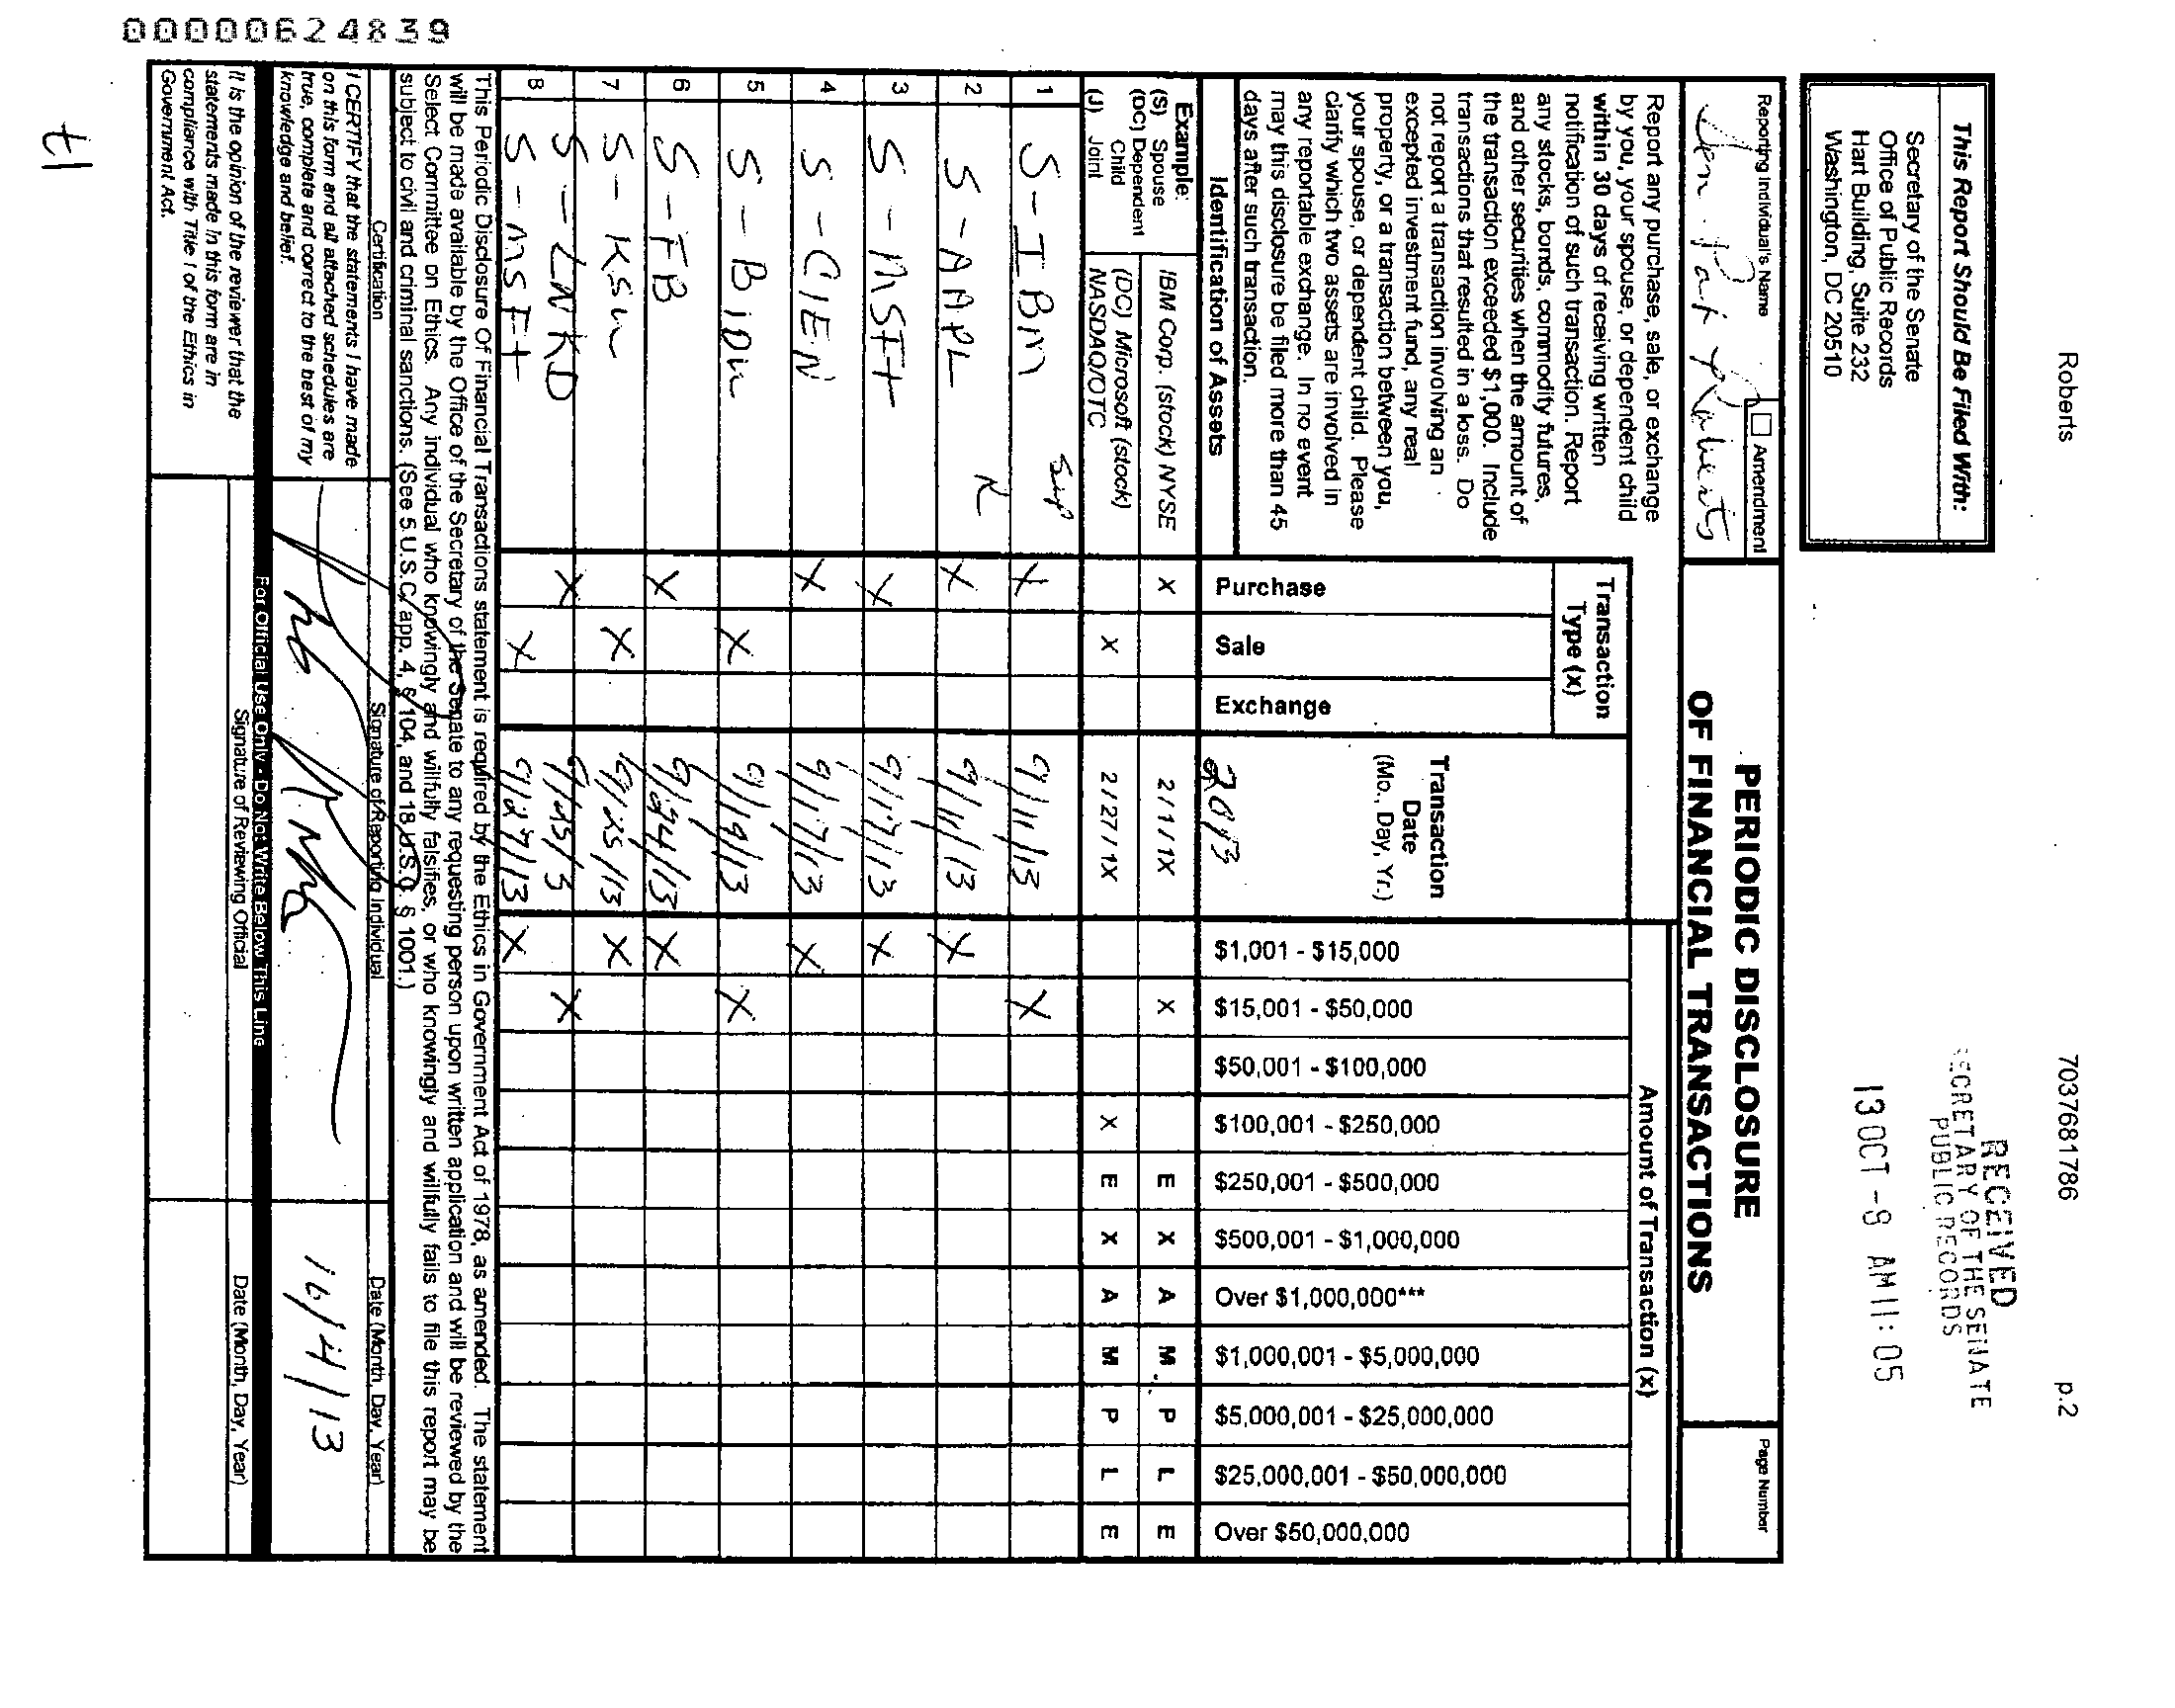 Roberts 7037681786 p.2
RECEIVED
SECRETARY OF THE SENATE
PUBLIC RECORDS
13 OCT -8 AM 11:05
This Report Should Be Filed With:
Secretary of the Senate
Office of Public Records
Hart Building, Suite 232
Washington, DC 20510
PERIODIC DISCLOSURE
OF FINANCIAL TRANSACTIONS
Reporting Individual's Name
Amendment
Page Number
Sen. Pat Roberts
Report any purchase, sale, or exchange
by you, your spouse, or dependent child
within 30 days of receiving written
notification of such transaction. Report
any stocks, bonds, commodity futures,
and other securities when the amount of
the transaction exceeded $1,000. Include
transactions that resulted in a loss. Do
not report a transaction involving an
excepted investment fund, any real
property, or a transaction between you,
your spouse, or dependent child. Please
clarify which two assets are involved in
any reportable exchange. In no event
may this disclosure be filed more than 45
days after such transaction.
Identification of Assets
Transaction
Type (x)
Purchase
Sale
Exchange
Transaction
Date
(Mo., Day, Yr.)
2013
Amount of Transaction (x)
$1,001 - $15,000
$15,001 - $50,000
$50,001 - $100,000
$100,001 - $250,000
$250,001 - $500,000
$500,001 - $1,000,000
Over $1,000,000***
$1,000,001 - $5,000,000
$5,000,001 - $25,000,000
$25,000,001 - $50,000,000
Over $50,000,000
Example:
(S) Spouse
(DC) Dependent
Child
(J) Joint
IBM Corp. (stock) NYSE X 2/1/1X X E X A M P L E
(DC) Microsoft (stock)
NASDAQ/OTC X 2/27/1X X E X A M P L E
1 S-IBM X 9/11/13 X
2 S-AAPL X 9/11/13 X
3 S-MSFT X 9/17/13 X
4 S-CIEN X 9/17/13 X
5 S-BIDU X 9/19/13 X
6 S-FB X 9/24/13 X
7 S-KSU X 9/25/13 X
S-LNKD X 9/25/13 X
8 S-MSFT X 9/27/13 X
This Periodic Disclosure Of Financial Transactions statement is required by the Ethics in Government Act of 1978, as amended. The statement
will be made available by the Office of the Secretary of the Senate to any requesting person upon written application and will be reviewed by the
Select Committee on Ethics. Any individual who knowingly and willfully falsifies, or who knowingly and willfully fails to file this report may be
subject to civil and criminal sanctions. (See 5 U.S.C. app. 4, § 104, and 18 U.S.C. § 1001.)
Certification
Signature of Reporting Individual
Date (Month, Day, Year)
I CERTIFY that the statements I have made
on this form and all attached schedules are
true, complete and correct to the best of my
knowledge and belief.
10/4/13
For Official Use Only - Do Not Write Below This Line
It is the opinion of the reviewer that the
statements made in this form are in
compliance with Title I of the Ethics in
Government Act.
Signature of Reviewing Official
Date (Month, Day, Year)
00000624839